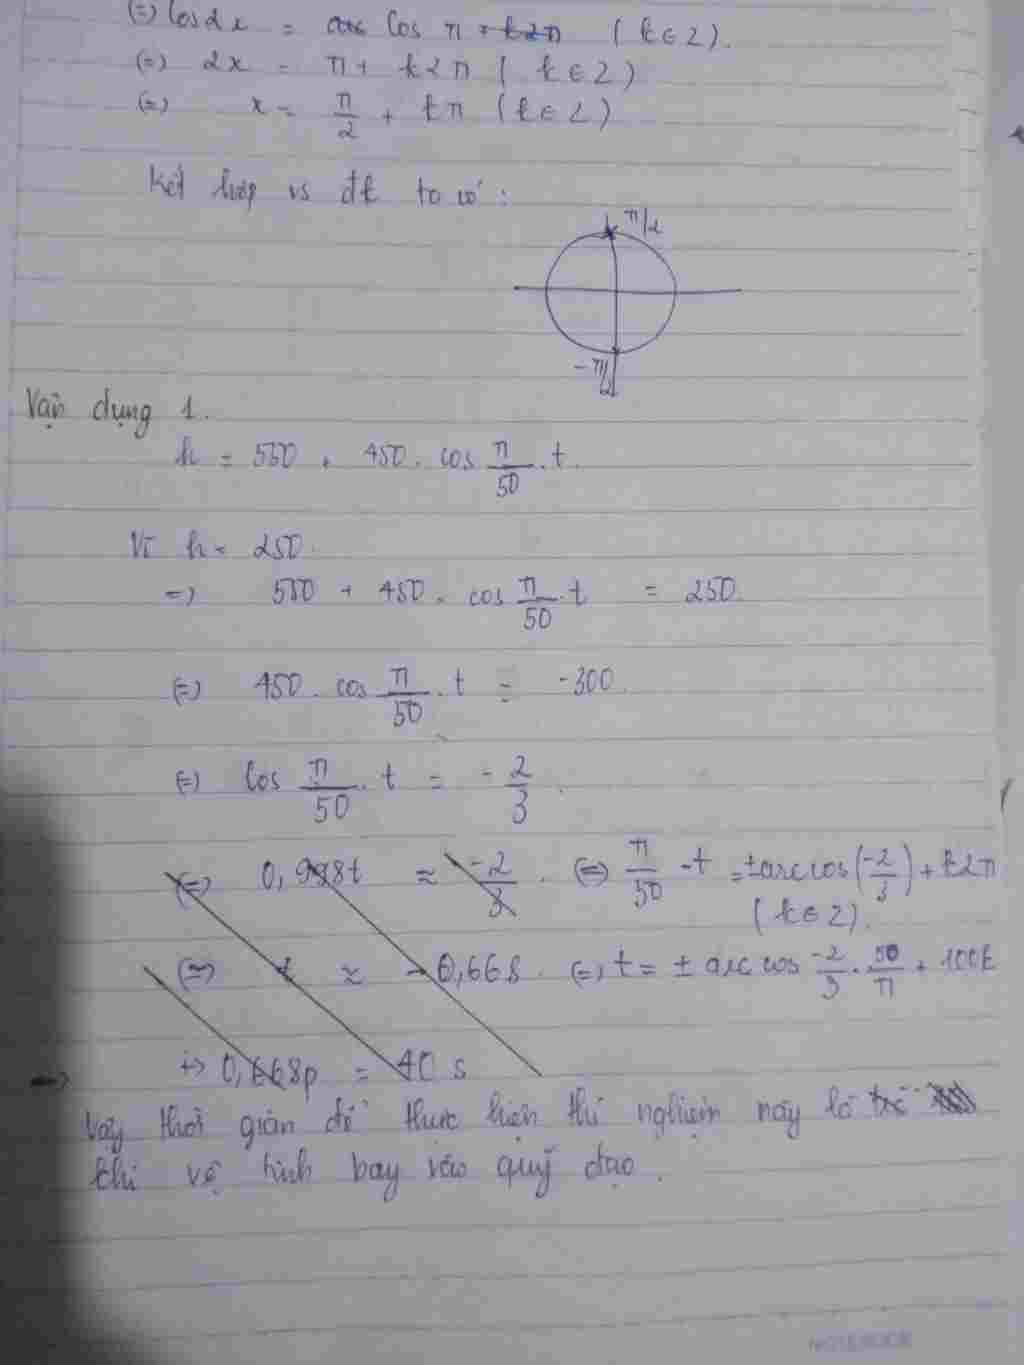 (=) Cos2x = cos π + k2π (k∈Z).
(=) 2x = π + k2π (k∈Z)
(=) x = π/2 + kπ (k∈Z)
Kết hợp vs đk ta có :
π/2
-π/2
Vận dụng 1.
h = 550 + 450 . cos π/50 . t.
Vì h = 250.
=) 550 + 450 . cos π/50 . t = 250.
(=) 450 . cos π/50 . t = -300.
(=) Cos π/50 . t = -2/3 .
(=) 0,998t ≈ -2/3 . (=) π/50 . t = ±arccos(-2/3) + k2π
(k∈Z).
(=) t ≈ -0,668. (=) t = ± arc cos -2/3 . 50/π + 100k
=> 0,668p = 40 s
Vậy thời gian để thực hiện thí nghiệm này là
khi vệ tinh bay vào quỹ đạo .
NOTEBOOK